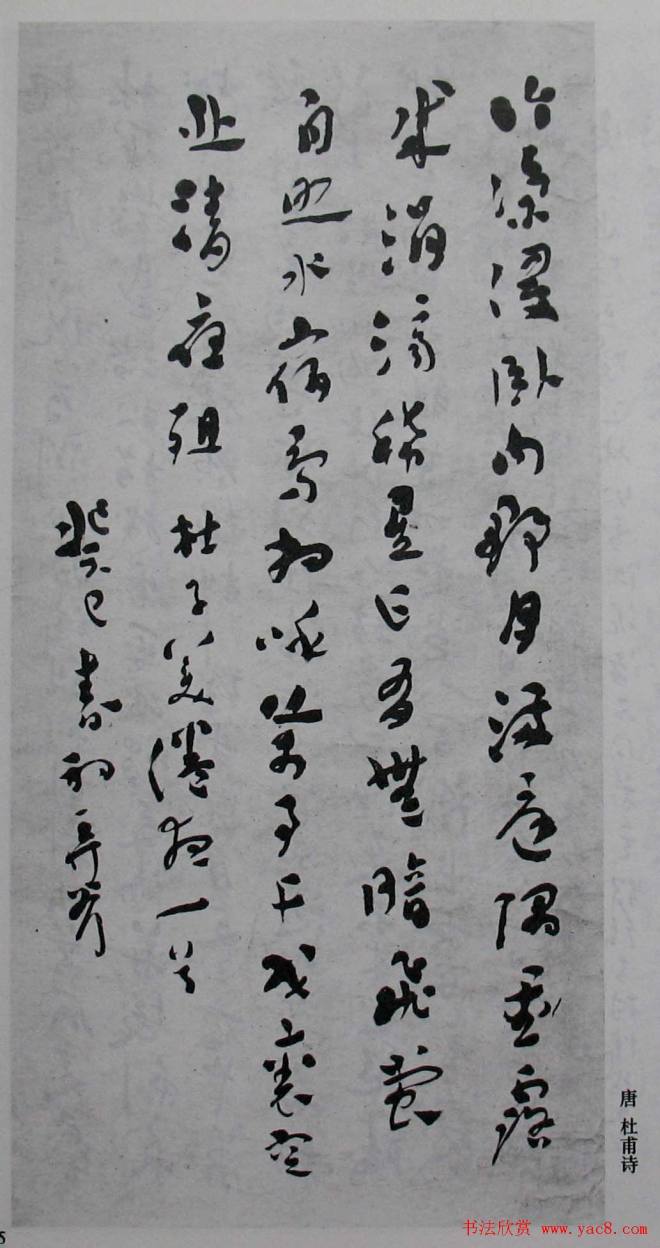 竹涼浸臥内野月滿庭隅重露
成涓滴稀星乍有無暗飛螢
自照水宿鳥相呼萬事干戈裏空
悲清夜徂 杜子美倦夜一首
癸巳書
唐 杜甫诗
5
书法欣赏 www.yac8.com